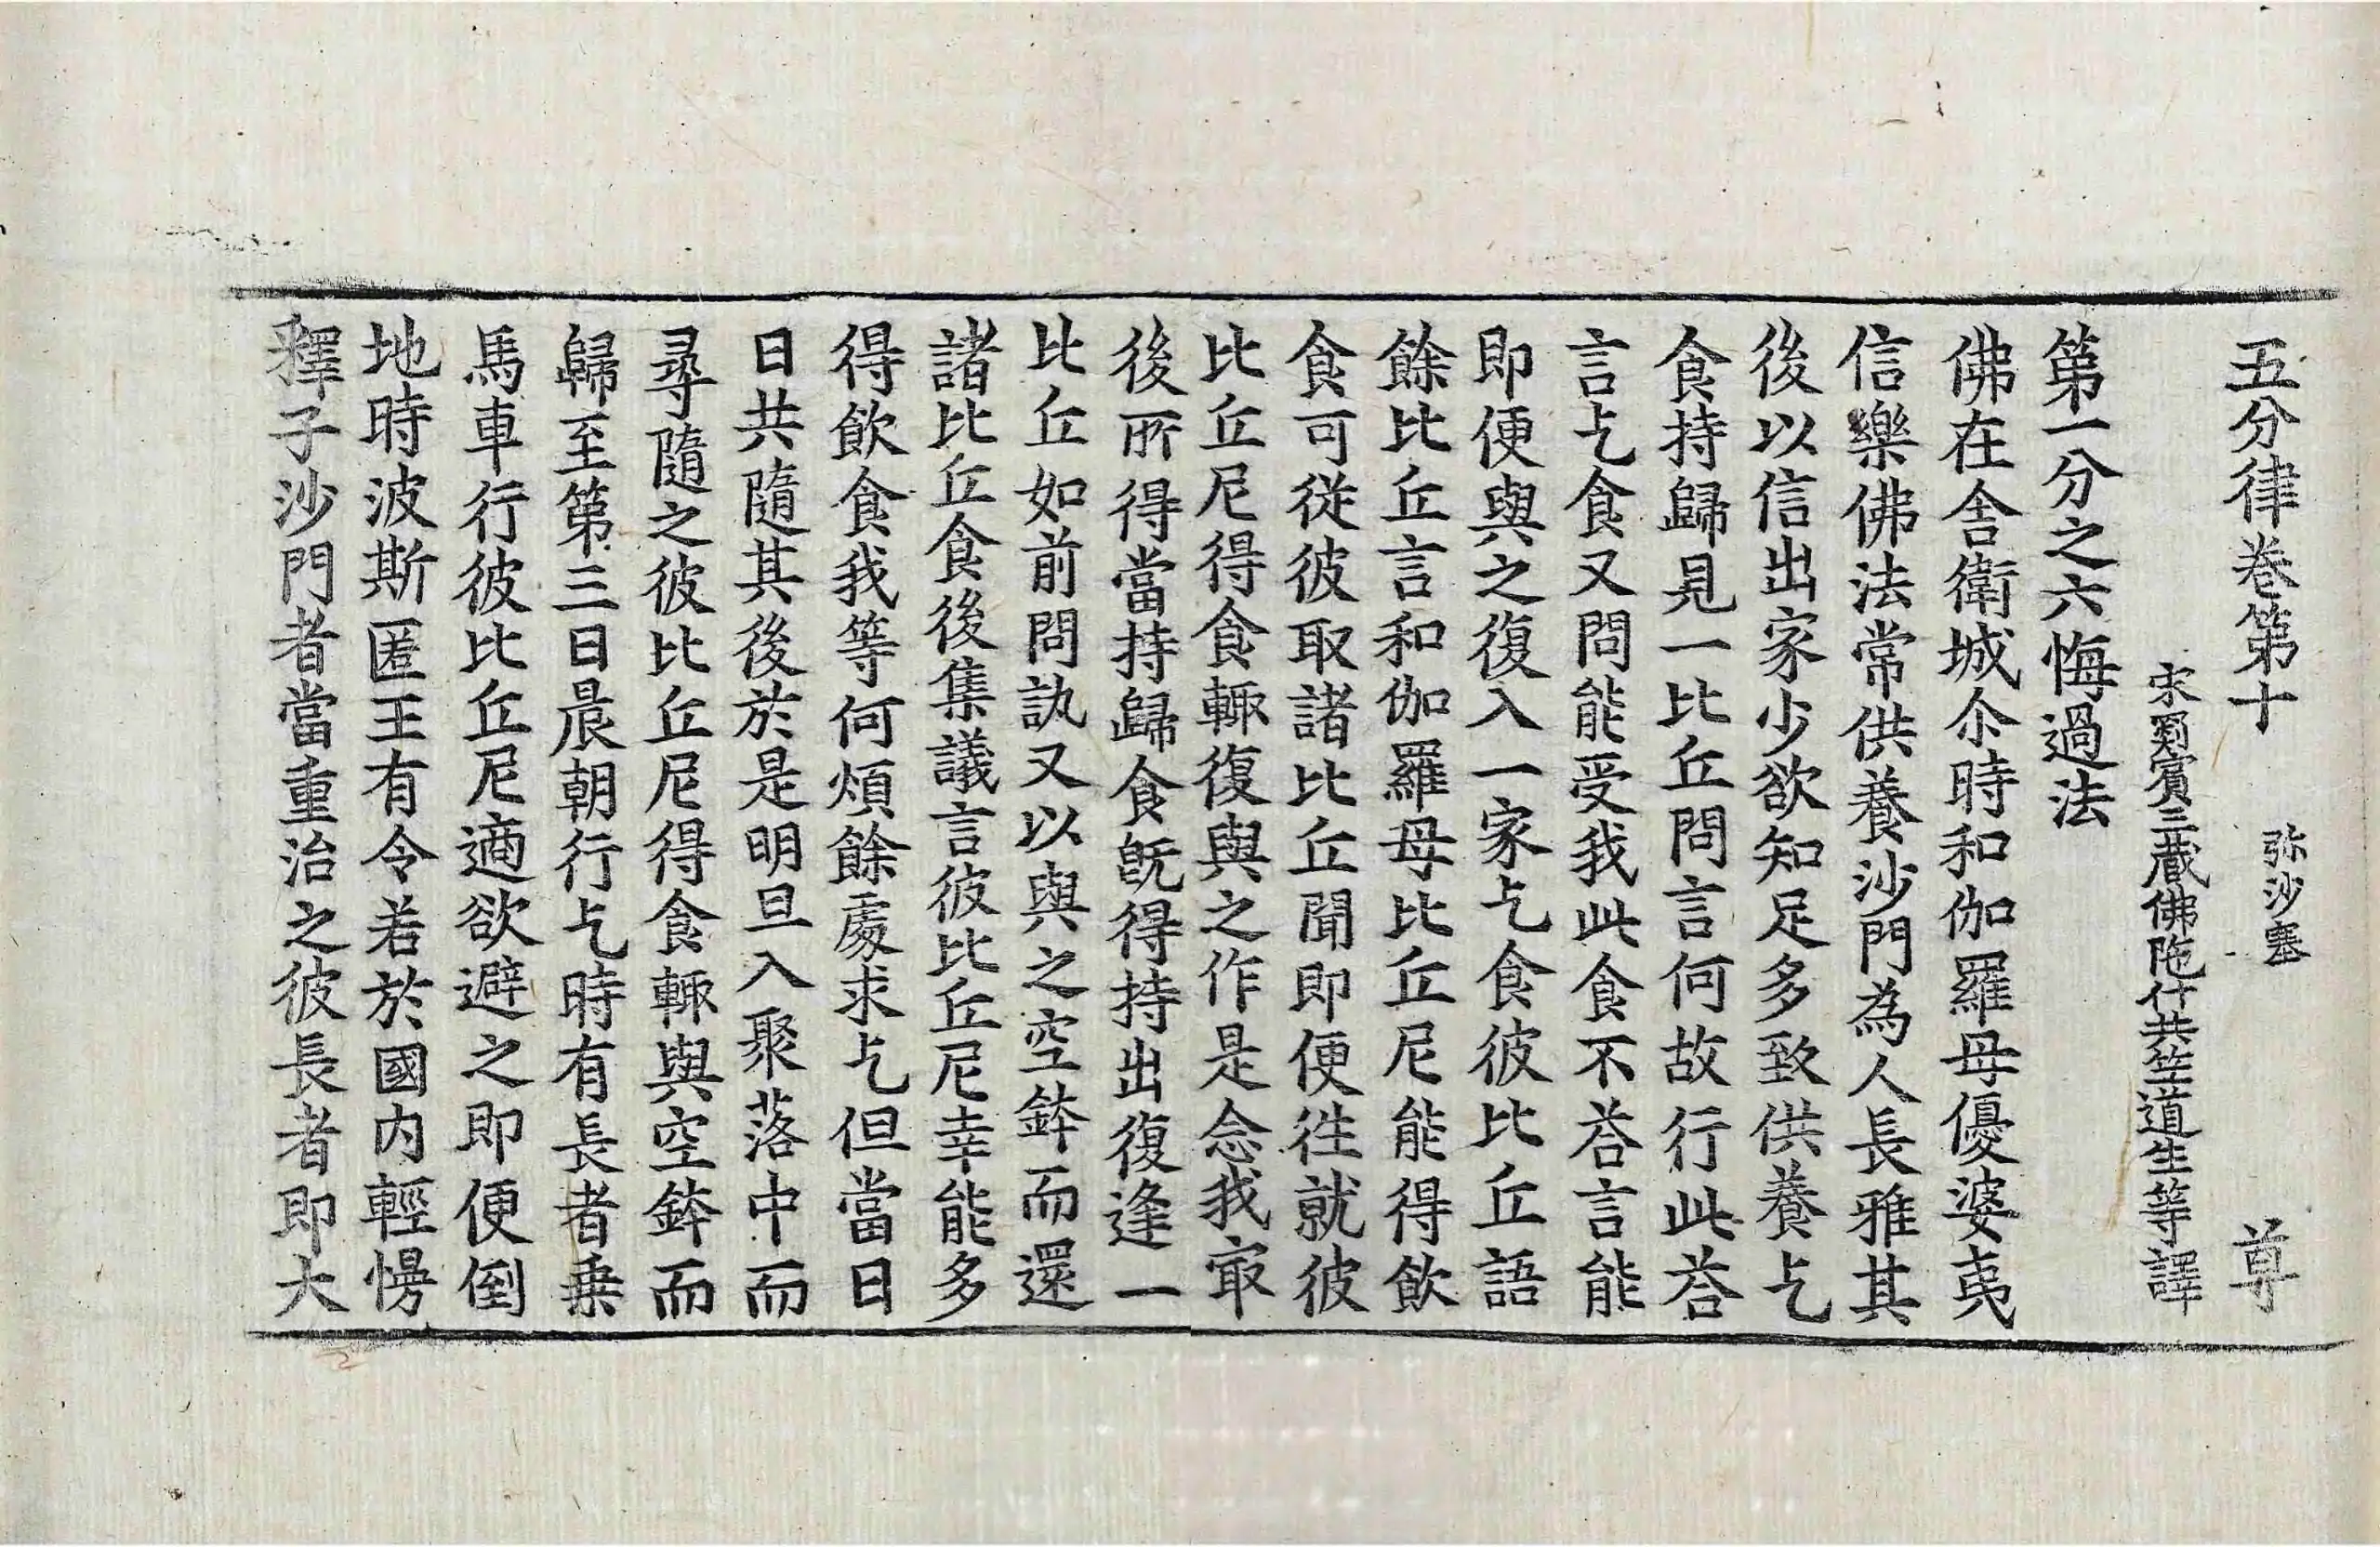 五分律卷第十 弥沙塞 尊
宋罽賓三藏佛陁什共竺道生等譯
第一分之六悔過法
佛在舍衛城尒時和伽羅母優婆夷
信樂佛法常供養沙門為人長雅其
後以信出家少欲知足多致供養乞
食持歸見一比丘問言何故行此荅
言乞食又問能受我此食不荅言能
即便與之復入一家乞食彼比丘語
餘比丘言和伽羅母比丘尼能得飲
食可從彼取諸比丘聞即便徃就彼
比丘尼得食輙復與之作是念我㝡
後所得當持歸食旣得持出復逢一
比丘如前問訊又以與之空鉢而還
諸比丘食後集議言彼比丘尼幸能多
得飲食我等何煩餘處求乞但當日
日共隨其後於是明旦入聚落中而
尋隨之彼比丘尼得食輙與空鉢而
歸至第三日晨朝行乞時有長者乗
馬車行彼比丘尼適欲避之即便倒
地時波斯匿王有令若於國内輕慢
釋子沙門者當重治之彼長者即大